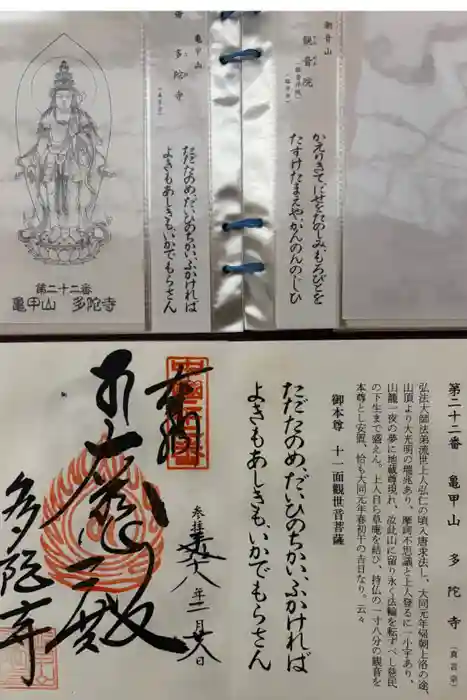 潮音山
観音院
かえりきて、にせをたのしみ、もろびとを
たすけたまえや、かんのんのじひ
亀甲山
多陀寺
(真言宗)
ただたのめ、だいひのちかい、ふかければ
よきもあしきも、いかでもらさん
第二十二番
亀甲山 多陀寺
第二十二番 亀甲山 多陀寺 (真言宗)
弘法大師法弟流世上人弘仁の頃入唐求法し、大同元年帰朝上洛の途
山頂より大光明の瑞兆あり、摩訶不思議と上人登るに一小字あり、
山籠一夜の夢に地蔵尊現れ、汝此山に留り永く法輪を転ずべし慈氏
の下生まで盛えん。上人自ら草庵を結び、持仏の一寸八分の観音を
本尊とし安置、恰も大同元年春初午の吉日なり。云々
御本尊 十一面観世音菩薩
ただたのめ、だいひのちかい、ふかければ
よきもあしきも、いかでもらさん
参拝 十八年二月廿八日
多陀寺